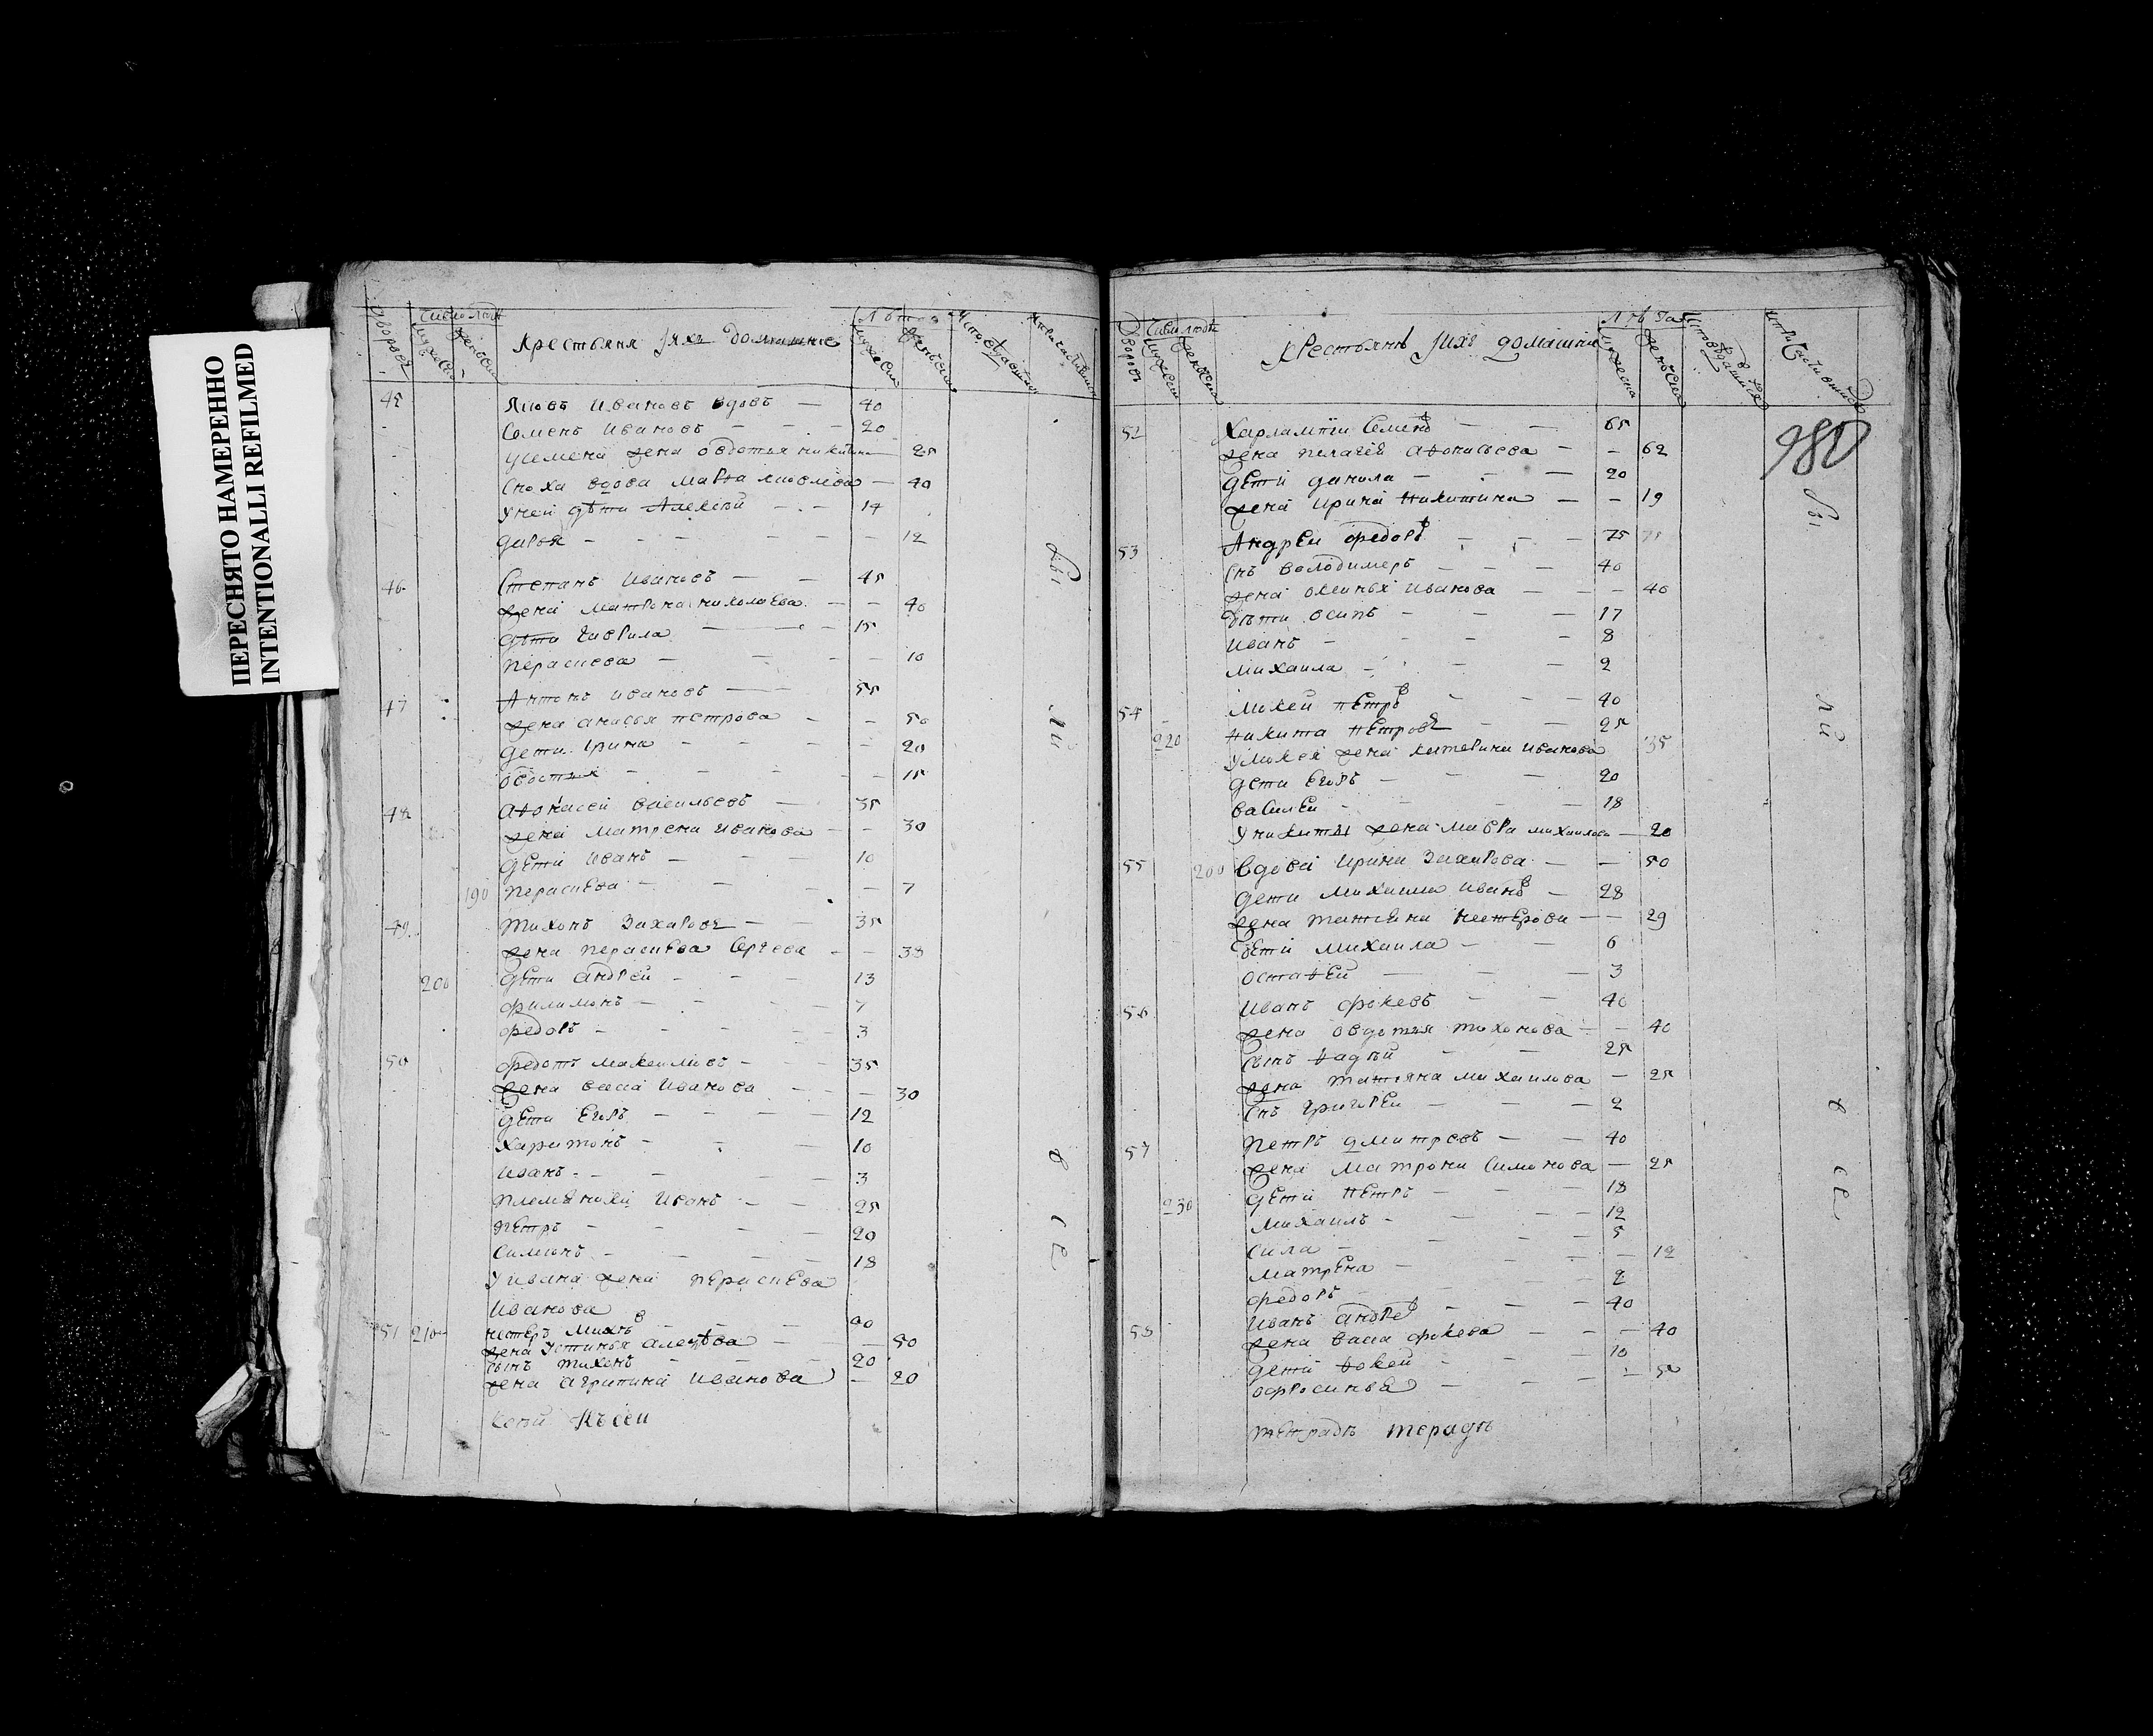 ПЕРЕСНЯТО НАМЕРЕННО
INTENTIONALLI REFILMED
дворовъ
Число люд
мужеска
женска
Крестьяня и ихъ домашние
Лѣта
мужеска
женска
45 Яковъ Ивановъ вдовъ — 40
Семенъ Ивановъ — 20
У Семена жена Овдотья Никитина — 25
Сноха вдова Мавра Яковлева — 40
У ней дѣти Алексѣй — 14
Дарья — 12
46 Степанъ Ивановъ — 45
жена Матрона Николаева — 40
дѣти Гаврила — 15
Пераскева — 10
47 Антонъ Ивановъ — 55
жена Анисья Петрова — 50
дети Ірина — 20
Овдотья — 15
48 Афонасей Васильевъ — 35
жена Матрена Иванова — 30
дети Иванъ — 10
190 Пераскева — 7
49 Тихонъ Захаровъ — 35
жена Пераскева Сергева — 38
200 дети Андрей — 13
Филимонъ — 7
Федоръ — 3
50 Федотъ Максимовъ — 35
жена Васса Иванова — 30
дети Егоръ — 12
Харитонъ — 10
Иванъ — 3
племяники Иванъ — 25
Петръ — 20
Симионъ — 18
У Ивана жена Пераскева
Иванова
51 210 Нестеръ 90
жена Устинья — 50
сынъ Тихонъ — 20
жена Агрипина Иванова — 20
бы
ли
в
се
дворовъ
Число люде
мужеска
женска
Крестьянѣ и ихъ домашние
Лѣта
мужеска
женска
980
52 Харлампги Семено в — 65
жена Пелагея Афонасьева — 62
дети Данила — 20
жена Ирина Никитина — 19
53 Андреи Федоро в — 75 75
снъ Володимеръ — 40
жена Оксинья Иванова — 40
дѣти Осипъ — 17
Иванъ — 8
Михаила — 2
54 Мокей Петро в — 40
220 Никита Петровъ — 25
У Мокея жена Катерина Иванова 35
дети Егоръ — 20
Василеи — 18
У Никиты жена Мавра Михаилова — 20
55 200 Вдова Ирина Захарова — 50
дети Михаила Ивано в — 28
жена Татьяна Нестерова — 29
дети Михаила — 6
Остафей — 3
56 Иванъ Фокевъ — 40
жена Овдотья Тихонова — 40
сынъ Фадѣй — 25
жена Татьяна Михаилова — 25
снъ Григореи — 2
57 Петръ Дмитревъ — 40
жена Матрона Симонова — 25
230 дети Петръ — 18
Михаилъ — 12
Сила — 5
Матрена — 12
Федоръ — 2
58 Иванъ Андре в — 40
жена Васса Фокева — 40
дети Фокей — 10
Офросинья — 5
тетрадь терадь
бы
ли
в
се